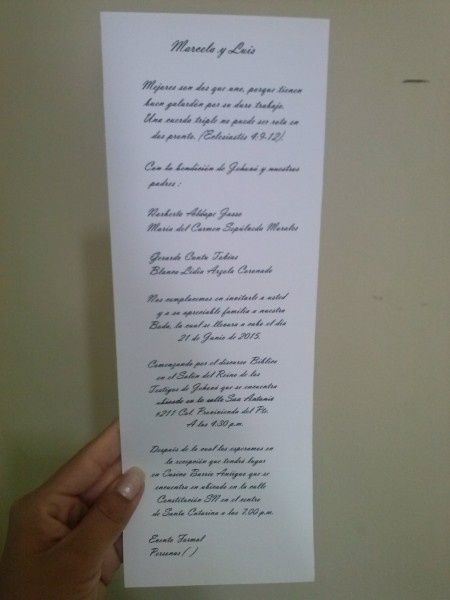 Marcela y Luis
Mejores son dos que uno, porque tienen
buen galardón por su duro trabajo.
Una cuerda triple no puede ser rota en
dos pronto. (Eclesiastés 4:9-12).
Con la bendición de Jehová y nuestros
padres :
Norberto Aldape Jasso
María del Carmen Sepúlveda Morales
Gerardo Cantu Tobias
Blanca Lidia Arzola Coronado
Nos complacemos en invitarle a usted
y a su apreciable familia a nuestra
Boda, la cual se llevara a cabo el día
21 de Junio de 2015.
Comenzando por el discurso Bíblico
en el Salón del Reino de los
Testigos de Jehová que se encuentra
ubicado en la calle San Antonio
#211 Col. Proviniendo del Pte.
A las 4:30 p.m.
Después de lo cual los esperamos en
la recepción que tendrá lugar
en Casino Barrio Antiguo que se
encuentra en ubicado en la calle
Constitución SN en el centro
de Santa Catarina a las 7:00 p.m.
Evento Formal
Personas ( )